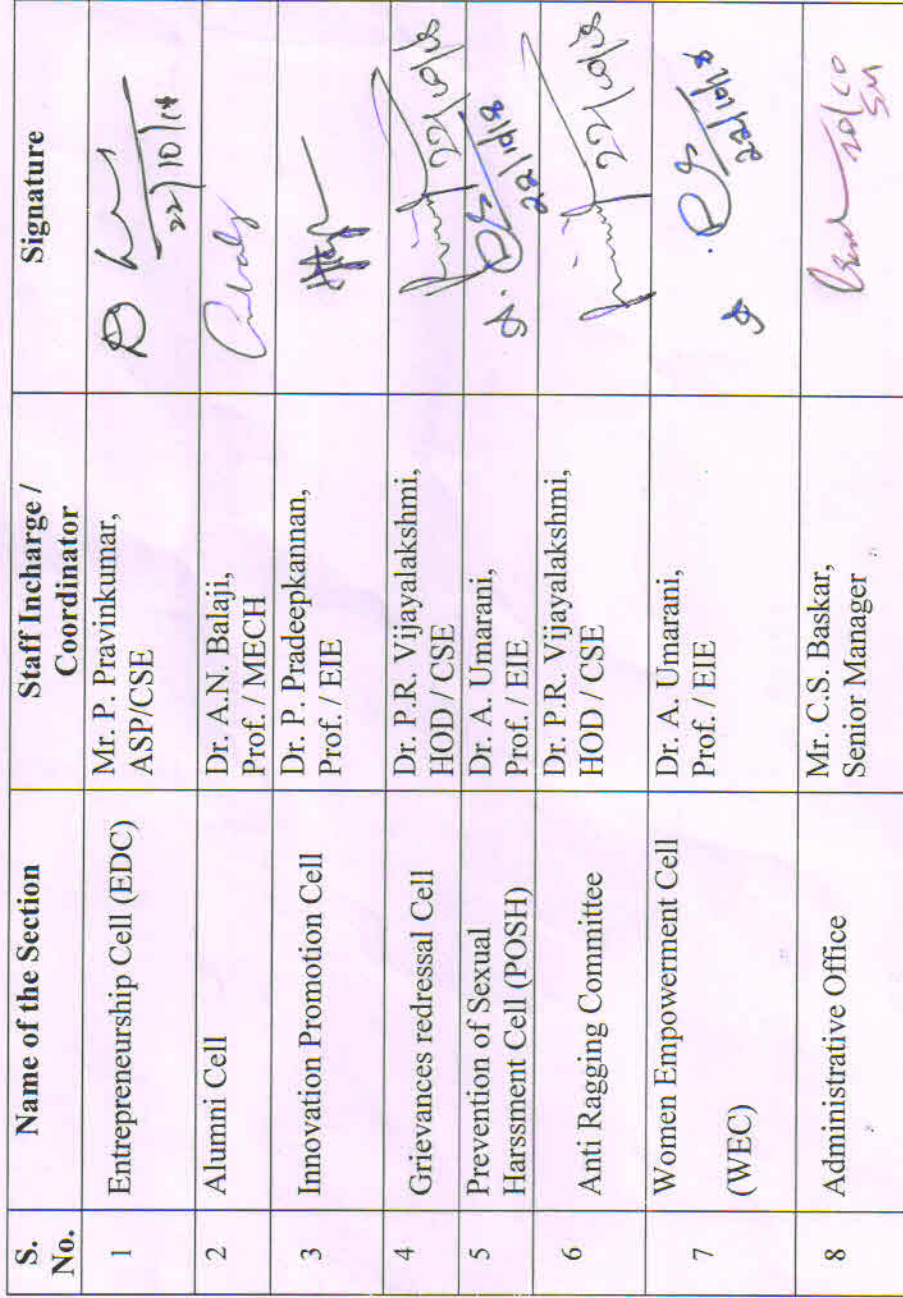 S. No.
Name of the Section
Staff Incharge /
Coordinator
Signature
1
Entrepreneurship Cell (EDC)
Mr. P. Pravinkumar,
ASP/CSE
22/10/18
2
Alumni Cell
Dr. A.N. Balaji,
Prof. / MECH
3
Innovation Promotion Cell
Dr. P. Pradeepkannan,
Prof. / EIE
4
Grievances redressal Cell
Dr. P.R. Vijayalakshmi,
HOD / CSE
22/10/18
5
Prevention of Sexual
Harssment Cell (POSH)
Dr. A. Umarani,
Prof. / EIE
22/10/18
6
Anti Ragging Committee
Dr. P.R. Vijayalakshmi,
HOD / CSE
22/10/18
7
Women Empowerment Cell
(WEC)
Dr. A. Umarani,
Prof. / EIE
22/10/18
8
Administrative Office
Mr. C.S. Baskar,
Senior Manager